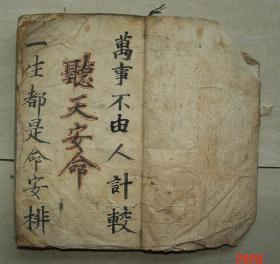 萬事不由人計較
聽天安命
一生都是命安排